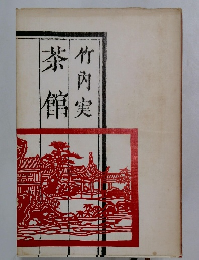 竹内実
茶館